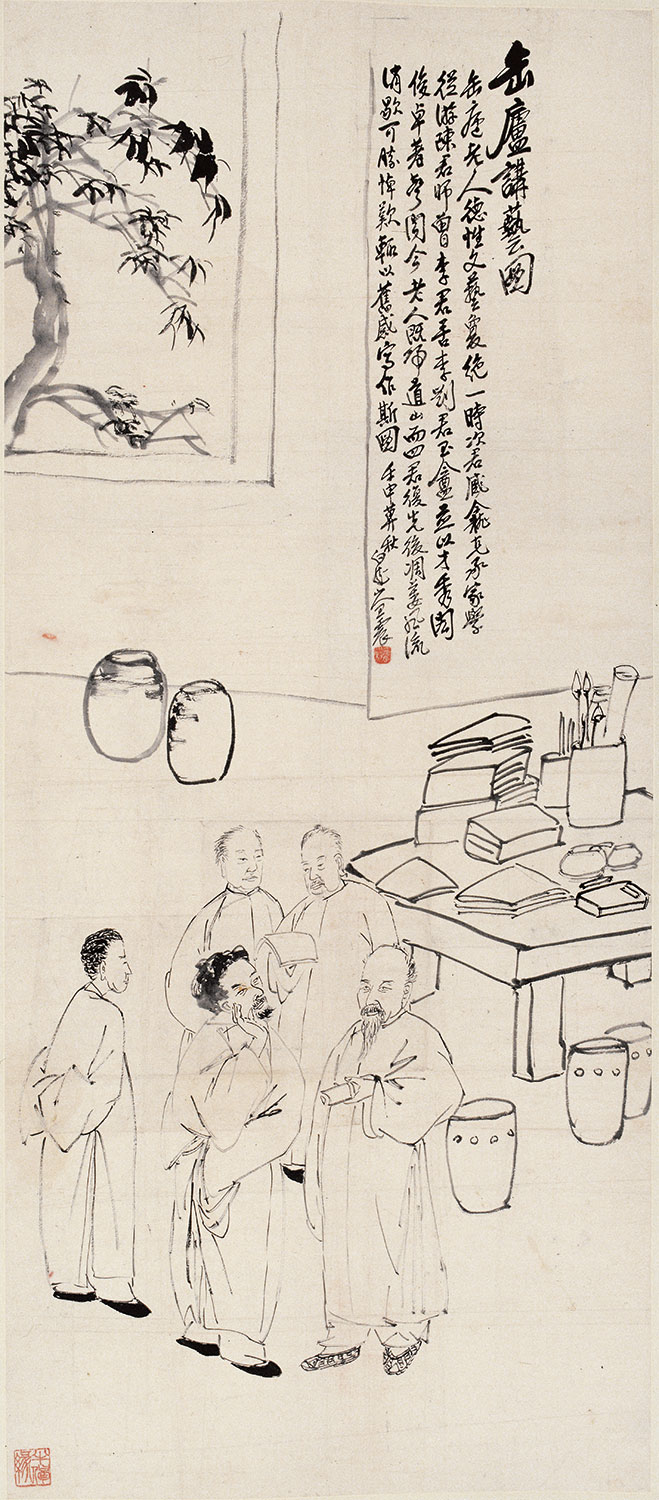 缶廬講藝圖
缶廬老人德性文藝敻絕一時次君臧龕克承家學
從游陳君師曾李君苦李劉君玉盦並以才秀閎
俊卓著聲聞今老人既歸道山而四君復先後凋萎風流
消歇可勝悼歎輒以舊感寫作斯圖 壬申莫秋 白龍山人王震